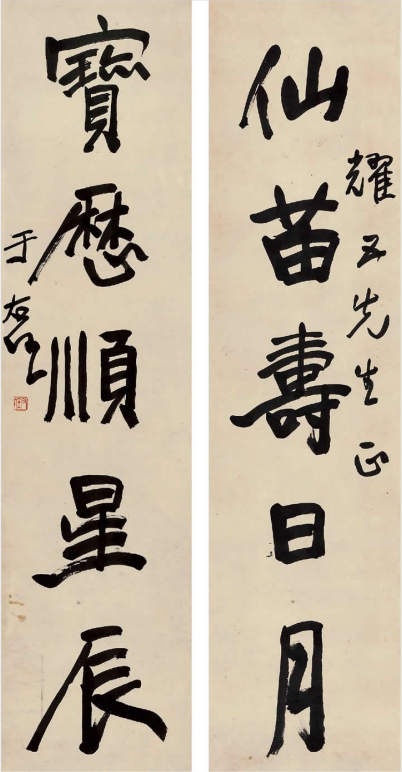 耀五先生正
仙苗壽日月
寶歷順星辰
于右任